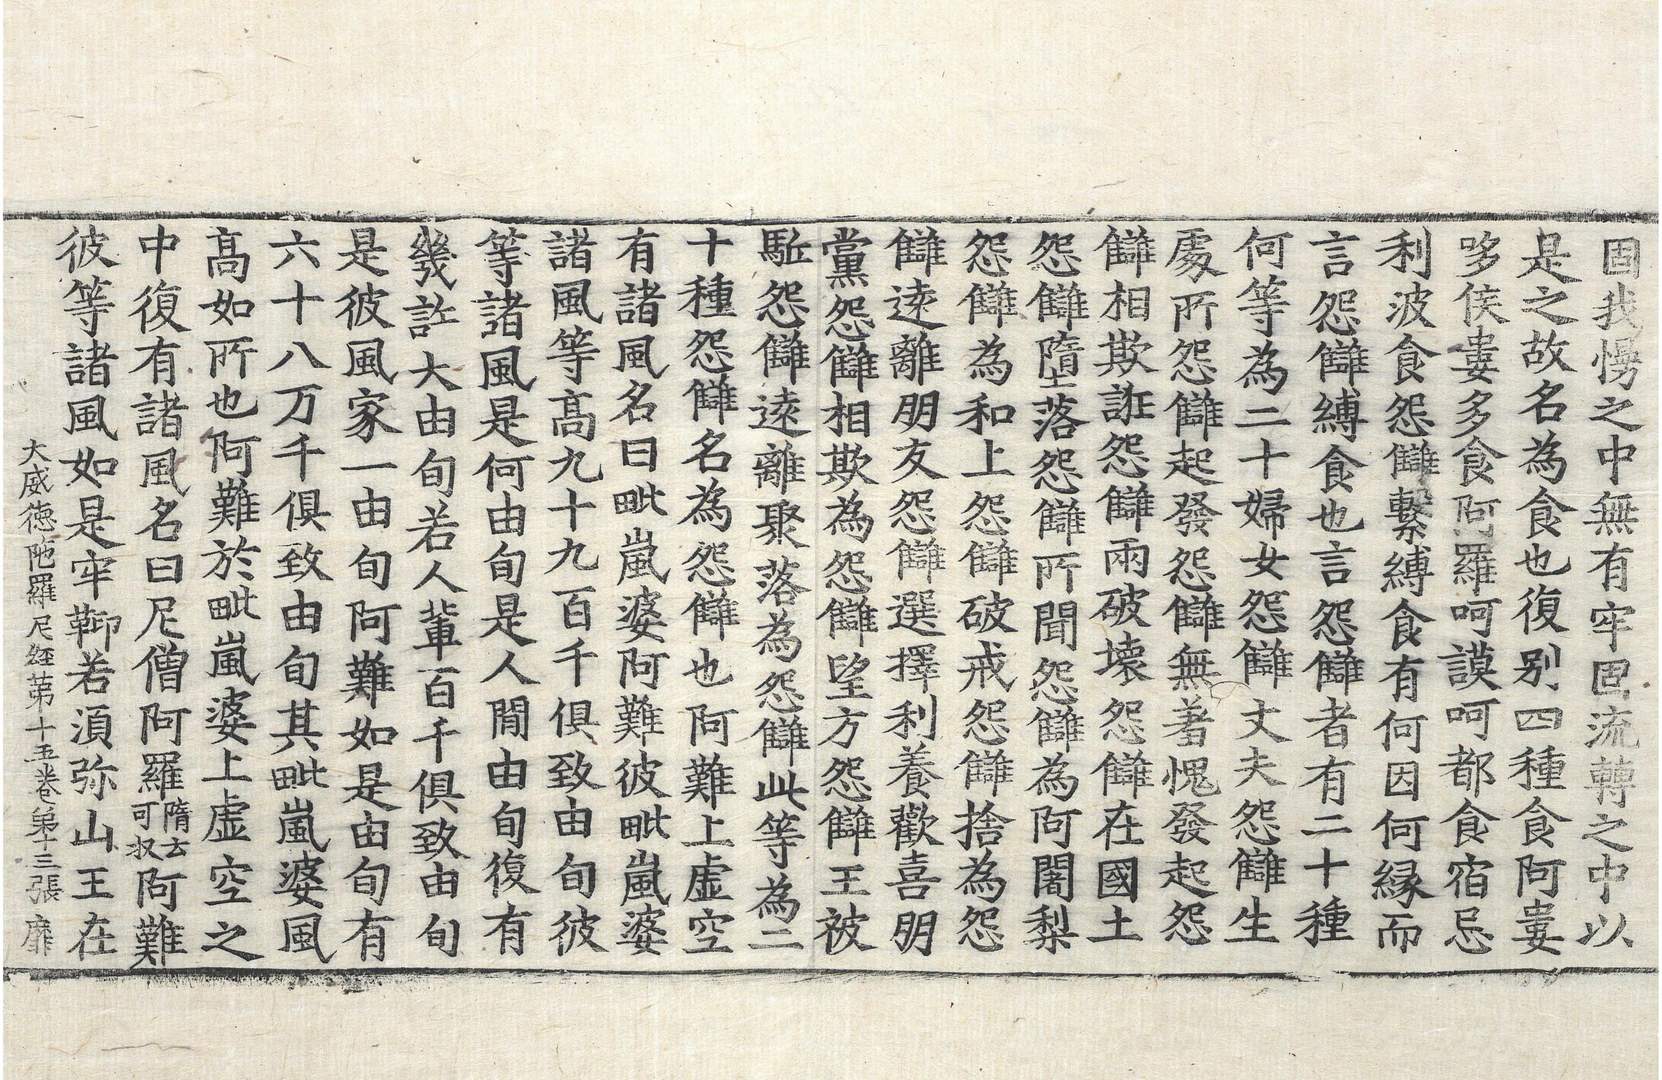 固我慢之中無有牢固流轉之中以
是之故名為食也復別四種食阿婁
哆侯婁多食阿羅呵謨呵都食宿忌
利波食怨讎繫縛食有何因何縁而
言怨讎縛食也言怨讎者有二十種
何等為二十婦女怨讎丈夫怨讎生
處所怨讎起發怨讎無著愧發起怨
讎相欺誑怨讎兩破壞怨讎在國土
怨讎墮落怨讎所聞怨讎為阿闍梨
怨讎為和上怨讎破戒怨讎捨為怨
讎遠離朋友怨讎選擇利養歡喜朋
黨怨讎相欺為怨讎望方怨讎王被
駈怨讎遠離聚落為怨讎此等為二
十種怨讎名為怨讎也阿難上虛空
有諸風名曰毗嵐婆阿難彼毗嵐婆
諸風等高九十九百千俱致由旬彼
等諸風是何由旬是人間由旬復有
幾許大由旬若人輩百千俱致由旬
是彼風家一由旬阿難如是由旬有
六十八万千俱致由旬其毗嵐婆風
高如所也阿難於毗嵐婆上虛空之
中復有諸風名曰尼僧阿羅隋云可牧阿難
彼等諸風如是牢鞕若湏弥山王在
大威德陁羅尼經第十五卷 第十三張 靡